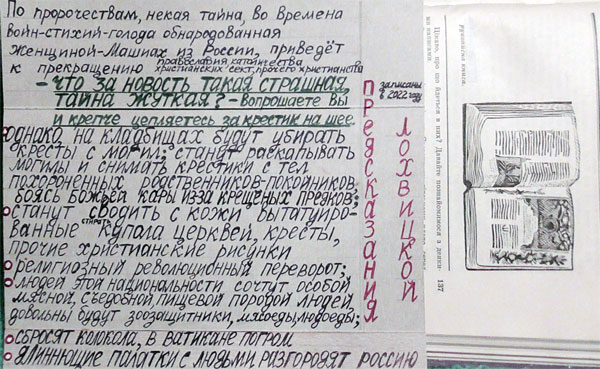 По пророчествам, некая тайна, во Времена
Войн-стихий-голода обнародованная
женщиной-Машиах из России, приведёт
к прекращению православия католичества
христианских сект, прочего христианства
- что за новость такая страшная,
тайна жуткая? - Вопрошаете Вы
и крепче цепляетесь за крестик на шее.
однако, на кладбищах будут убирать
кресты с могил; станут раскапывать
могилы и снимать крестики с тел
похороненных родственников-покойников,
боясь Божьей кары из-за крещёных предков;
станут сводить с кожи вытатуиро-
ванные купала церквей, кресты,
стирать
прочие христианские рисунки
религиозный революционный переворот;
людей этой национальности сочтут особой
мясной, съедобной, пищевой породой людей
довольны будут зоозащитники, мясоеды, людоеды;
сбросят колокола, в Ватикане погром
длиннющие палатки с людьми разгородят Россию
записаны
в 2022 году
ПРЕДСКАЗАНИЯ
ЛОХВИЦКОЙ
Цікаво, про що йдеться в них? Давайте познайомимося з деяки-
ми написами.
Рукописна книга.
137